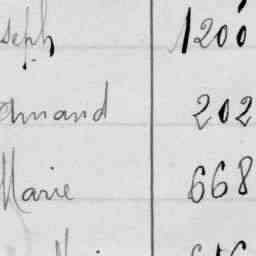 seph 1200
Amand 202
Marie 668